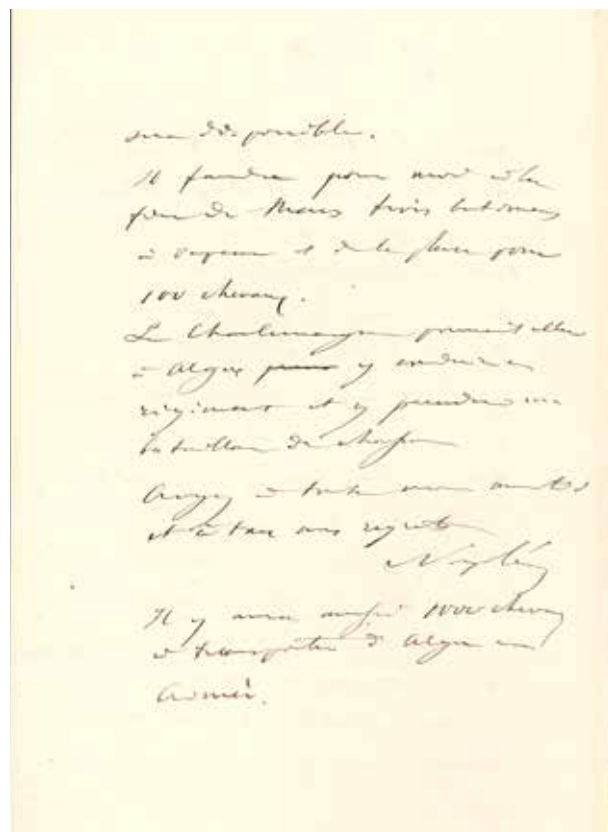 sera disponible.
Il faudra pour moi à la
fin de Mars trois batimens
à vapeur et de la place pour
100 chevaux.
Le Charlemagne pourrait aller
à Alger pour y conduire un
régiment et y prendre un
bataillon de chasseurs
Croyez à toute mon amitié
et à tous mes regrets
Napoléon
Il y aura aussi 1000 chevaux
à transporter d'Alger en
Crimée.